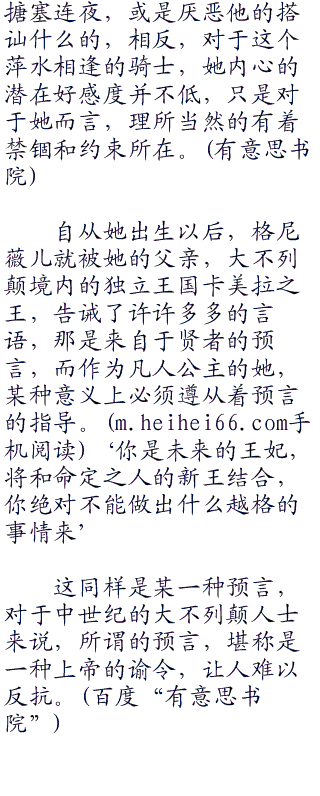 搪塞连夜，或是厌恶他的搭
讪什么的，相反，对于这个
萍水相逢的骑士，她内心的
潜在好感度并不低，只是对
于她而言，理所当然的有着
禁锢和约束所在。(有意思书
院)
自从她出生以后，格尼
薇儿就被她的父亲，大不列
颠境内的独立王国卡美拉之
王，告诫了许许多多的言
语，那是来自于贤者的预
言，而作为凡人公主的她，
某种意义上必须遵从着预言
的指导。(m.heihei66.com手
机阅读)‘你是未来的王妃，
将和命定之人的新王结合，
你绝对不能做出什么越格的
事情来’
这同样是某一种预言，
对于中世纪的大不列颠人士
来说，所谓的预言，堪称是
一种上帝的谕令，让人难以
反抗。(百度“有意思书
院”)